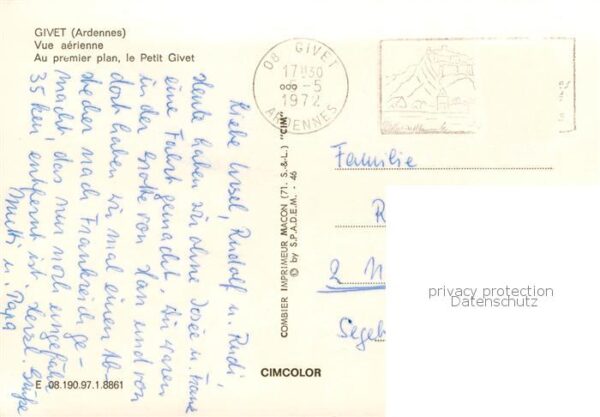 GIVET (Ardennes)
Vue aérienne
Au premier plan, le Petit Givet
08 GIVET
17H30
-5
1972
ARDENNES
Liebe Ursel, Rudolf u. Rudi,
Heute haben wir ohne Josée u. Frans
eine Fahrt gemacht, wir waren
in der Grotte von Han und von
dort haben wir mal einen Ab-
stecher nach Frankreich ge-
macht, das nur noch ungefähr
35 km entfernt ist. Herzl. Grüße
Mutti u. Papa
COMBIER IMPRIMEUR MACON (71. S.-&-L.) "CIM"
© by S.P.A.D.E.M. - 46
Familie
R
2
Segeb
privacy protection
Datenschutz
CIMCOLOR
E 08.190.97.1.8861